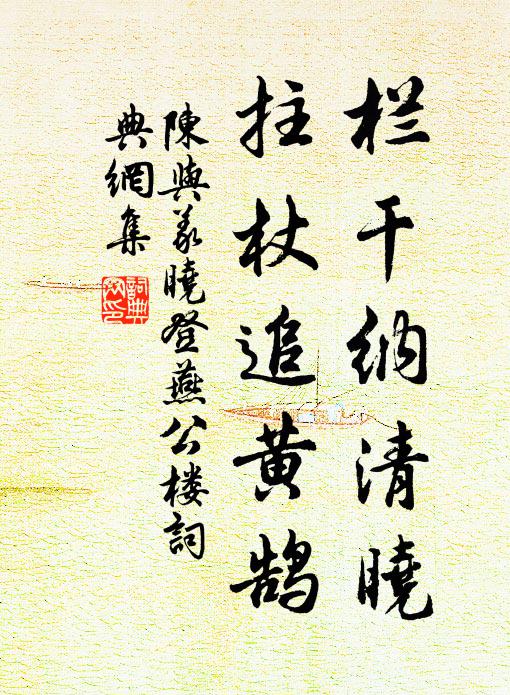 栏干纳清曉
拄杖追黄鹄
陳與義曉登燕公楼詞
典網集
詞典网印